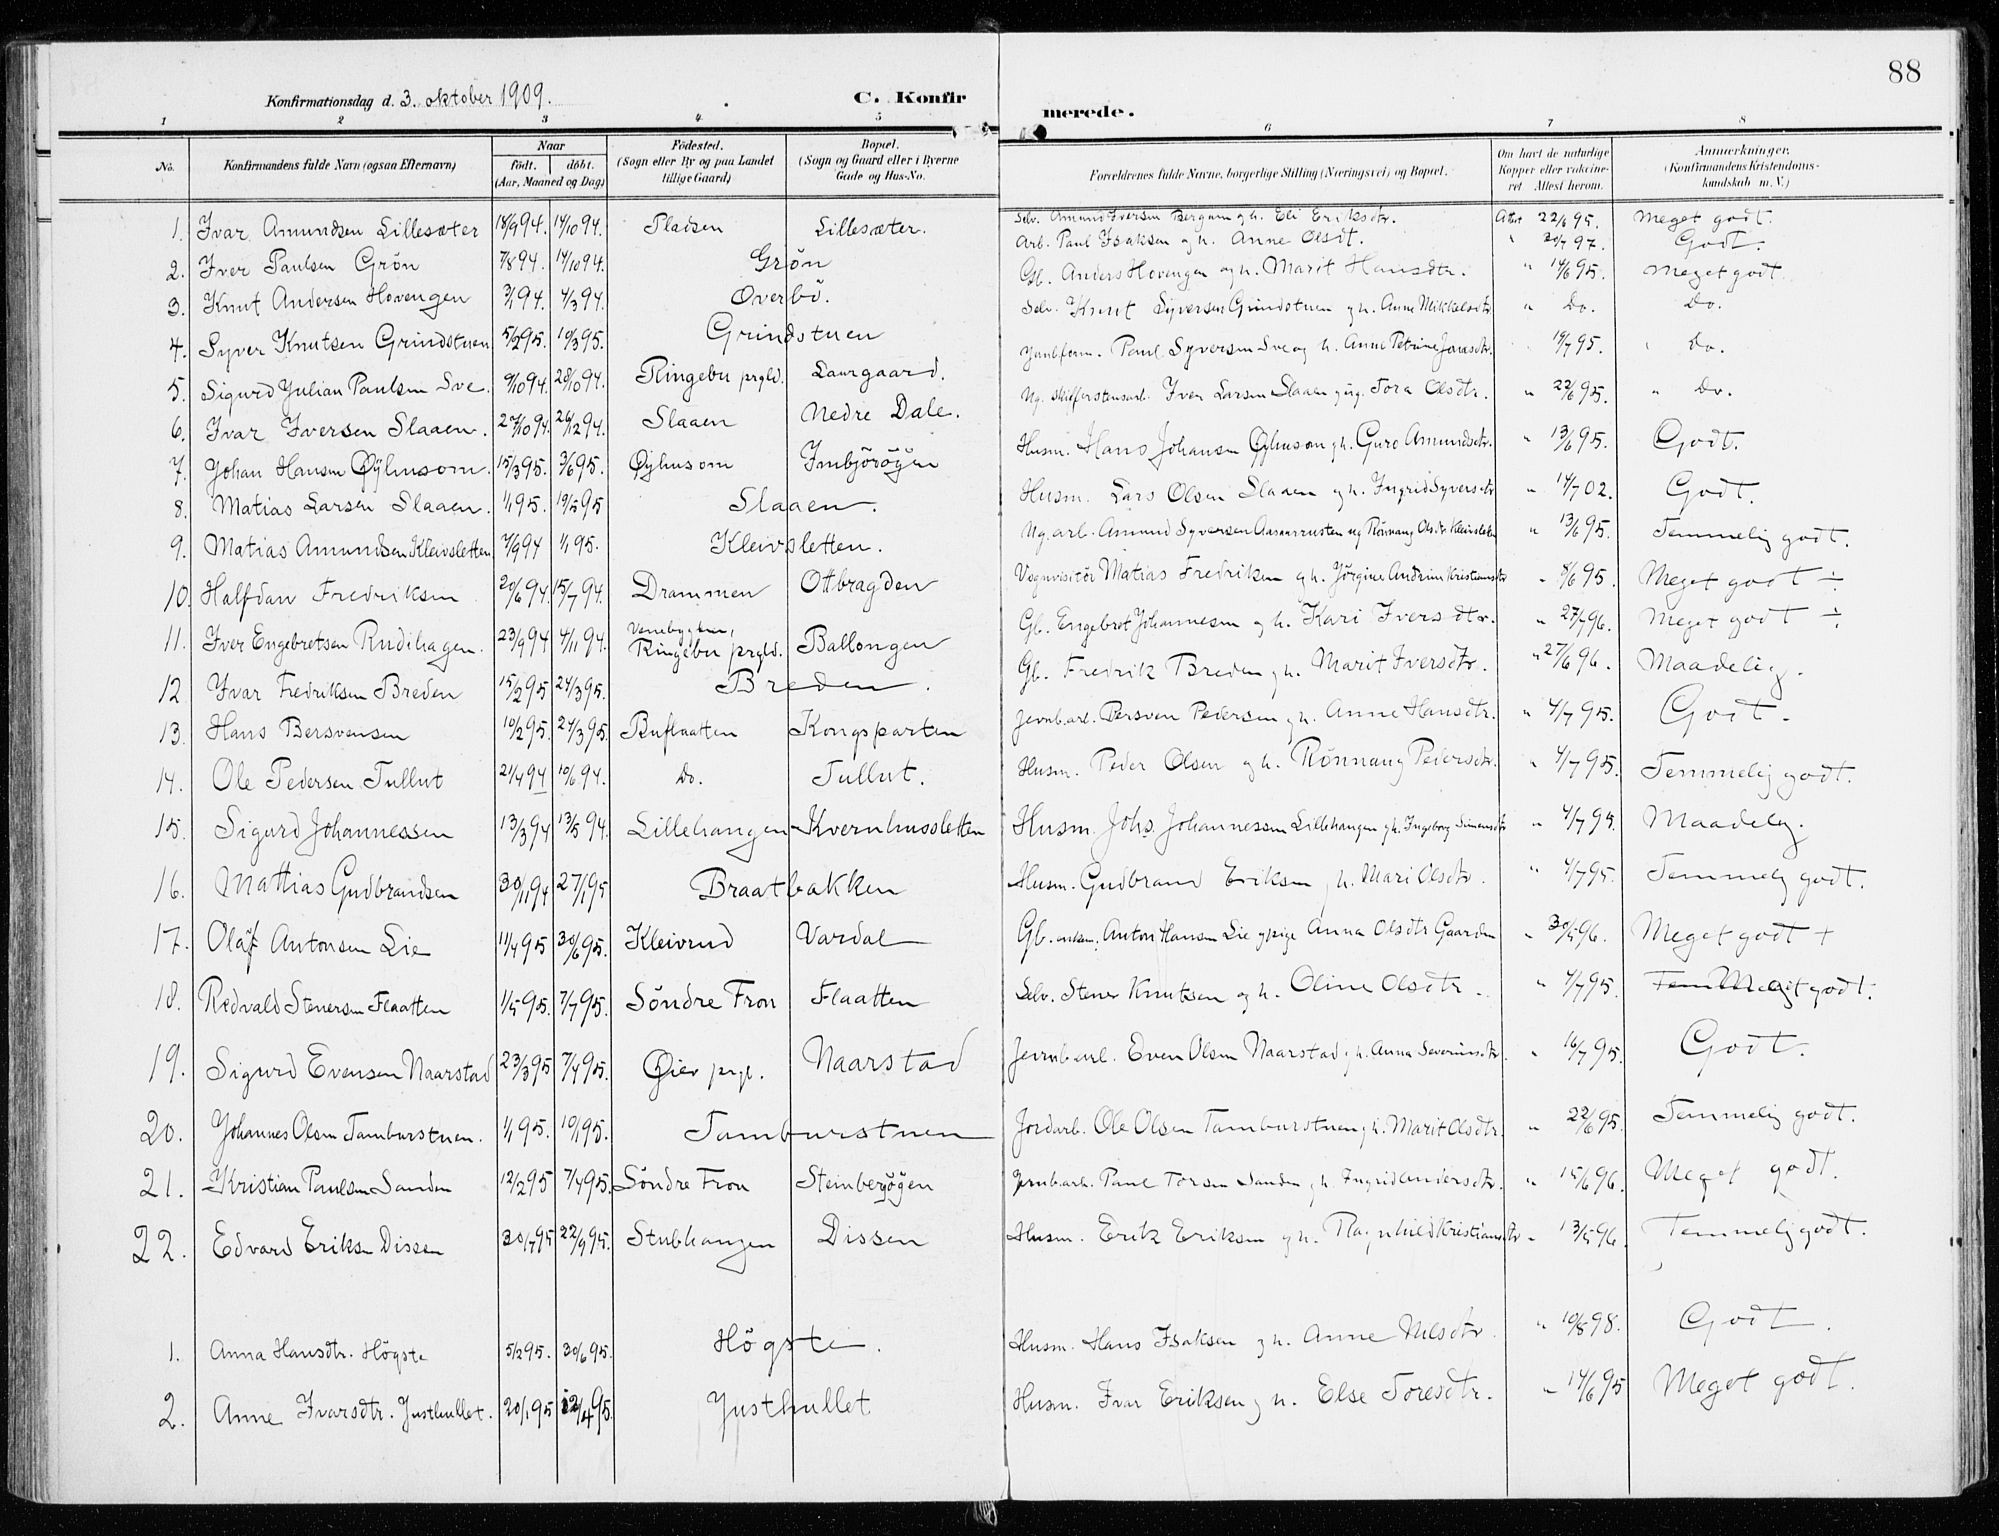 88
Konfirmationsdag d. 3. oktober 1909.
C. Konfirmerede.
1 2 3 4 5 6 7 8
No. Konfirmandens fulde Navn (ogsaa Efternavn) Naar født. døbt. (Aar, Maaned og Dag) Fødested. (Sogn eller By og paa Landet tillige Gaard) Bopæl. (Sogn og Gaard eller i Byerne Gade og Hus-No. Forældrenes fulde Navne, borgerlige Stilling (Næringsvei) og Bopæl. Om havt de naturlige Kopper eller vaccineret Attest herom. Anmærkninger. (Konfirmandens Kristendomskundskab m. V.)
1. Ivar Amundsen Lillesæter 18/9 94. 14/10 94. Pladsen Lillesæter. Selv. Amund Iversen Bergum og h. Eli Eriksdtr. Attest 22/6 95. Meget godt.
2. Iver Paulsen Grön 7/8 94. 14/10 94. Grön Arb. Paul Isaksen og h. Anne Olsdt. " 20/7 97. Godt.
3. Knut Andersen Hovengen 3/1 94. 4/3 94. Överbö. Gb. Anders Hovengen og h. Marit Hansdtr. " 14/6 95. Meget godt.
4. Syver Knutsen Grindstuen 5/2 95. 10/3 95. Grindstuen Selv. Knut Syversen Grindstuen og h. Anne Mikkelsdtr. " Do. Do.
5. Sigurd Julian Paulsen Sve. 9/10 94. 28/10 94. Ringebu prgld. Laurgaard. Paul Syversen Sve og h. Anne Petrine Jonsdtr. 19/7 95. " Do.
6. Ivar Iversen Slaaen. 27/10 94. 26/12 94. Slaaen Nedre Dale. Ug. skiferstensarb. Iver Larsen Slaaen og ug. Tora Olsdtr. " 22/6 95. " Do.
7. Johan Hansen Øÿhusom. 15/3 95. 3/6 95. Øyhusom Imbjörögen Husm. Hans Johansen Øyhusom og h. Guro Amundsdtr. " 13/6 95. Godt.
8. Matias Larsen Slaaen. 1/1 95. 10/2 95 Slaaen. Husm. Lars Olsen Slaaen og h. Ingrid Syversdtr " 14/7 02. Godt.
9. Matias Amundsen Kleivsletten 7/9 94 1/1 95. Kleivsletten. Ug. arb. Amund Syversen Aasaarusten og Rønnaug Olsdtr Kleivsletten " 13/6 95. Temmelig godt.
10. Halfdan Fredriksen 20/6 94. 15/7 94. Drammen Ottbragden Vognvisitør Matias Fredriksen og h. Jörgine Andrine Kristiansdtr " 8/6 95. Meget godt ÷
11. Iver Engebretsen Rudihagen. 23/9 94 4/11 94. Venebygden, Ringebu prgld. Ballongen Gb. Engebret Johannesen og h. Kari Iversdtr. " 27/7 96. Meget godt ÷
12 Ivar Fredriksen Breden 15/2 95 24/3 95. Breden. Gb. Fredrik Breden og h. Marit Iversdtr. " 27/6 96. Maadelig.
13. Hans Bersvensen 10/2 95. 24/3 95. Buflaatten Kongsparten Jernb.arb. Bersven Pedersen og h. Anne Hansdtr. " 4/7 95. Godt.
14. Ole Pedersen Tullut 21/4 94 10/6 94. Do. Tullut. Husm. Peder Olsen og h. Rönnaug Pedersdtr. " 4/7 95. Temmelig godt.
15. Sigurd Johannessen 13/3 94 13/5 94. Lillehaugen Kvernhussletten Husm. Johs. Johannessen Lillehaugen og h. Ingeborg Simensdtr " 4/7 95. Maadelig.
16. Mattias Gudbrandsen 30/11 94 27/1 95 Braatbakken Husm. Gudbrand Eriksen og h. Mari Olsdtr. " 4/7 95. Temmelig godt.
17. Olaf Antonsen Lie 11/4 95 30/6 95. Kleivrud Vardal Gb. enkem. Anton Hansen Lie og pige Anna Olsdtr Gaarden " 30/5 96. Meget godt +
18. Redvald Stenersen Flaatten 1/5 95. 7/7 95. Söndre Fron Flaatten Selv. Stener Knutsen og h. Oline Olsdtr. " 4/7 95. Tem Meget godt.
19. Sigurd Evensen Naarstad 23/3 95 7/4 95. Øier prgl. Naarstad Jernb.arb. Even Olsen Naarstad og h. Anna Severinsdtr. " 16/7 95. Godt.
20. Johannes Olsen Tamburstuen. 1/1 95. 10/1 95. Tamburstuen Jordarb. Ole Olsen Tamburstuen og h. Marit Olsdtr. " 22/6 95. Temmelig godt.
21. Kristian Paulsen Sanden 12/2 95 7/4 95. Söndre Fron Steinberögen Jernb.arb. Paul Torsen Sanden og h. Ingrid Andersdtr. " 15/6 96. Meget godt.
22. Edvard Eriksen Dissen 30/7 95 22/9 95. Stubhaugen Dissen Husm. Erik Eriksen og h. Ragnhild Kristiansdtr " 13/5 96. Temmelig godt.
1. Anna Hansdtr. Högste 5/2 95. 30/6 95. Högste. Husm. Hans Isaksen og h. Anne Nilsdtr. " 10/8 98. Godt.
2. Anne Ivarsdtr. Justhullet. 20/1 95 12/4 95. Justhullet Husm. Ivar Eriksen og h. Else Toresdtr. " 14/6 95 Meget godt.